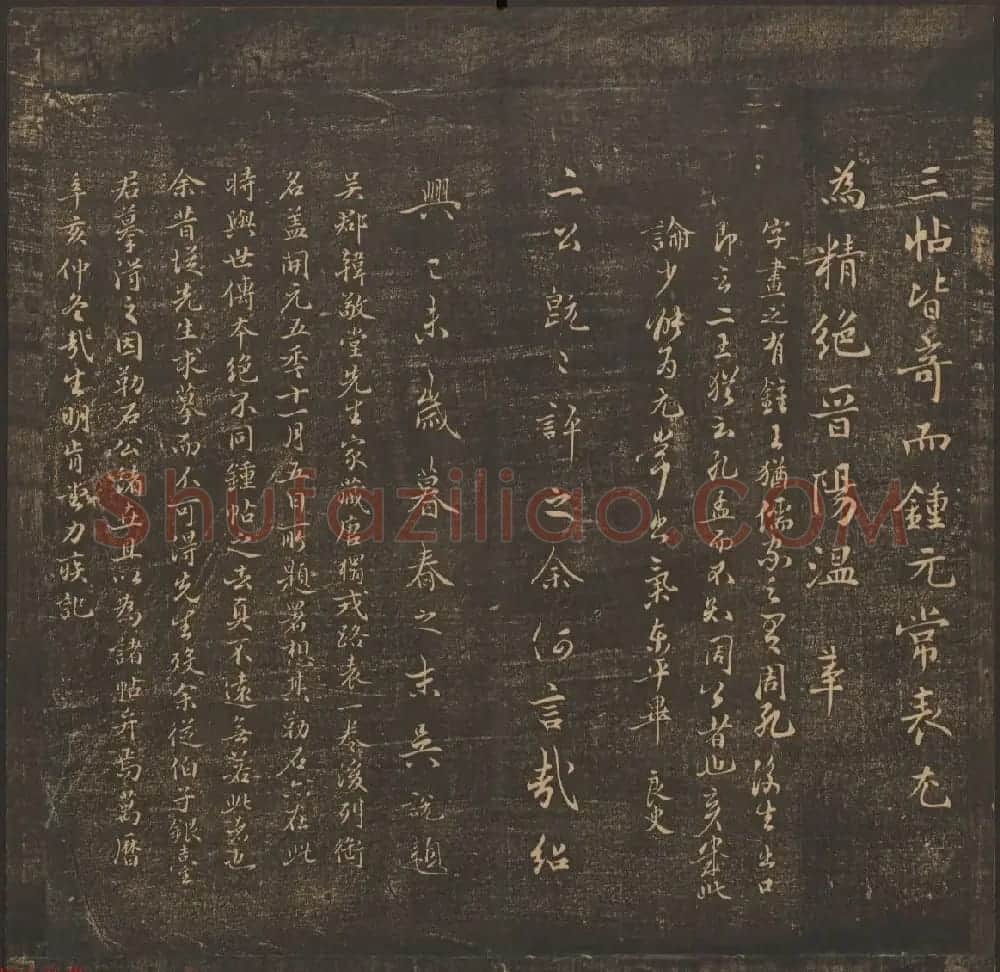 三帖皆奇而鍾元常表尤
為精絕晉陽溫革
字畫之有鍾王猶儒家之有周孔後生出口
即言二王猶云孔孟而不知周公者也亥來此
論少能為元常出氣東平畢良史
二公既已許之余何言哉紹
興己未歲暮春之末吳說題
吳郡韓敬堂先生家藏唐摹戎路表一卷後列銜
名蓋開元五年十一月五日所題署想其勒石亦在此
時與世傳本絕不同鍾帖之去真不遠無若此者也
余昔從先生求摹而不可得先生歿余從伯子
君摹得之因勒石以為諸帖弁焉萬曆
辛亥仲冬哉生明肯堂力疾記
Shufaziliao.com